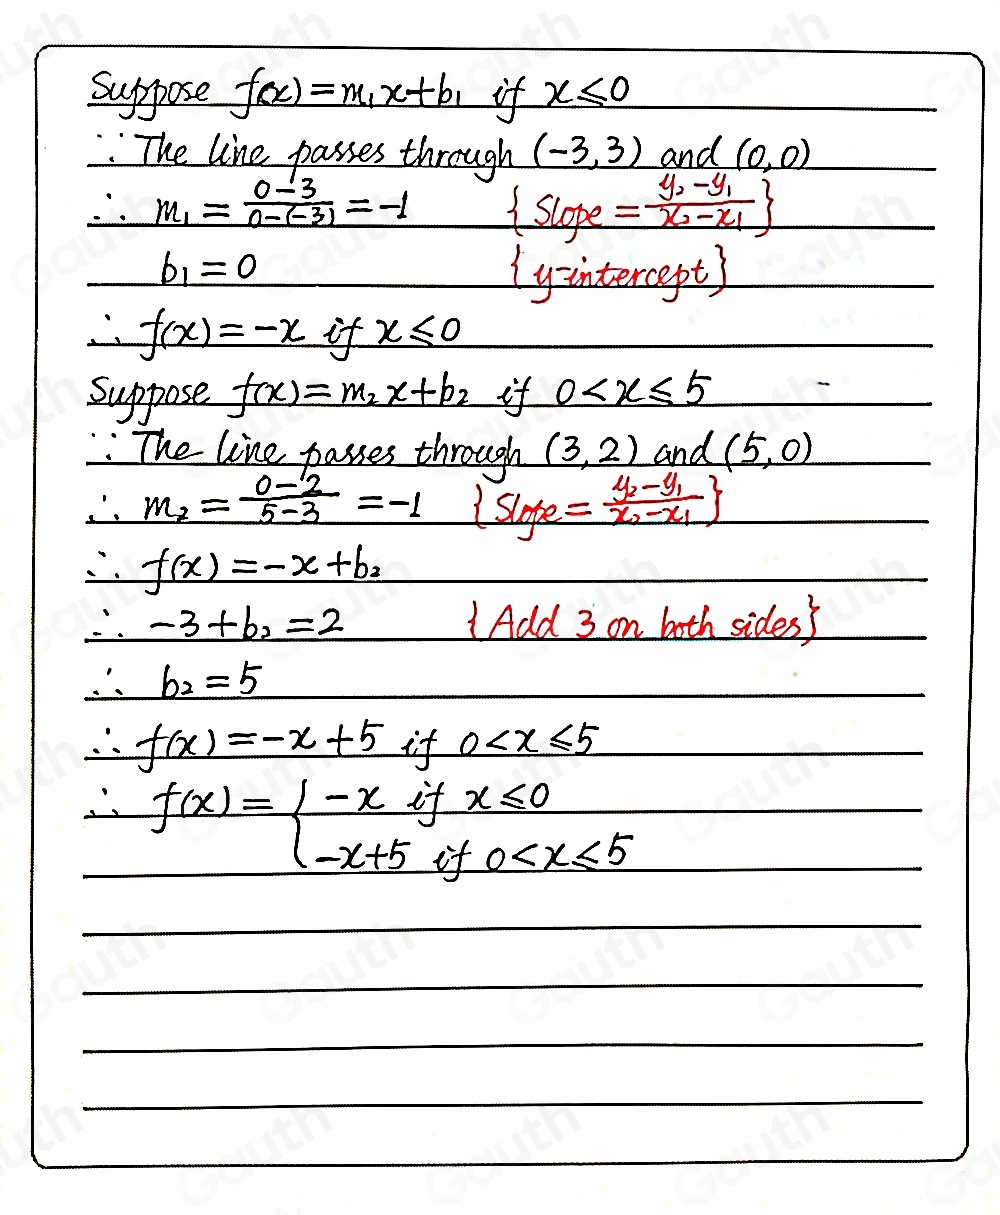 Suppose f(x)=m₁x+b₁ if x≤0
∵ The line passes through (-3,3) and (0,0)
∴ m₁ = (0-3)/(0-(-3)) = -1 {Slope = (y₂-y₁)/(x₂-x₁)}
b₁ = 0 {y-intercept}
∴ f(x) = -x if x≤0
Suppose f(x)=m₂x+b₂ if 0<x≤5
∵ The line passes through (3,2) and (5,0)
∴ m₂ = (0-2)/(5-3) = -1 {Slope = (y₂-y₁)/(x₂-x₁)}
∴ f(x) = -x+b₂
∴ -3+b₂=2 {Add 3 on both sides}
∴ b₂=5
∴ f(x)=-x+5 if 0<x≤5
∴ f(x) = { -x if x≤0
-x+5 if 0<x≤5
Gauth